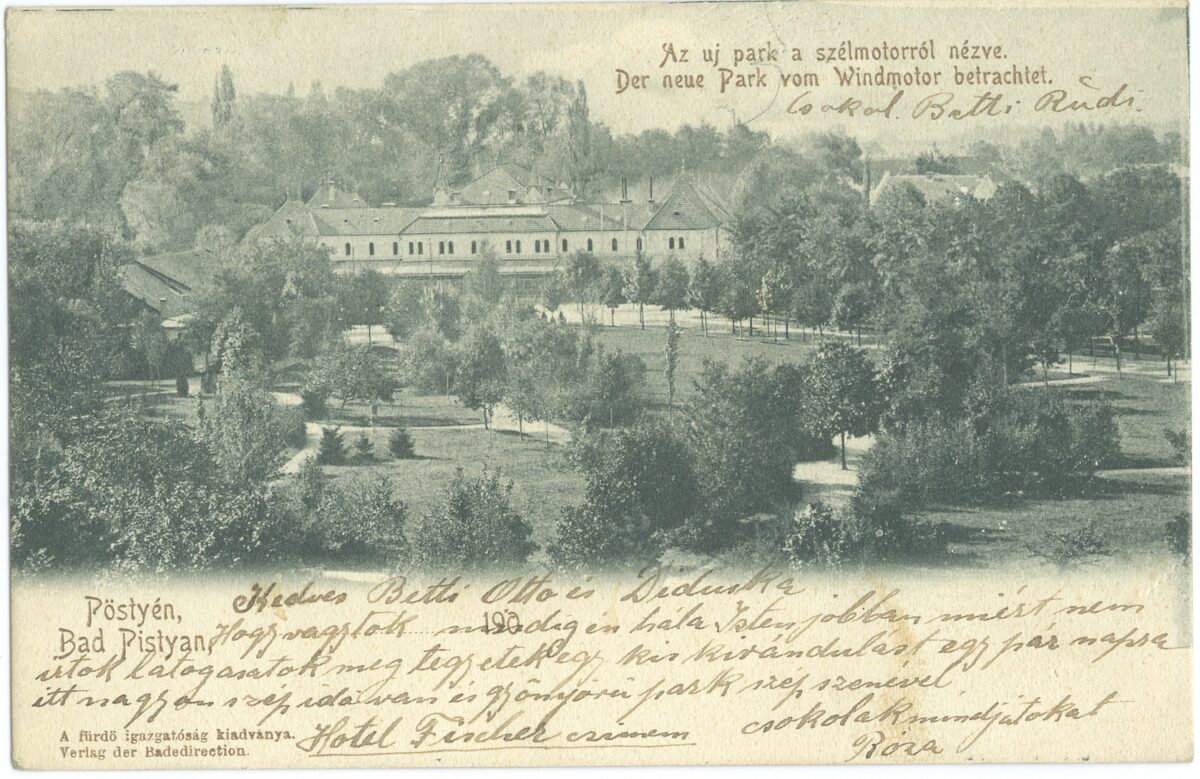 Az uj park a szélmotorról nézve.
Der neue Park vom Windmotor betrachtet.
Csokol. Betti Rudi.
Kedves Betti Otto és Diduska
Pöstyén,
Bad Pistyan, 190
Hogy vagytok mindig én hála Isten jobban miért nem
irtok látogasatok meg tegyetek egy kis kirándulást egy pár napra
itt nagyon szép idő van és gyönyörű park szép szenével
csokolak mindjátokat
Hotel Fischer czimem
Róza
A fürdö igazgatóság kiadványa.
Verlag der Badedirection.